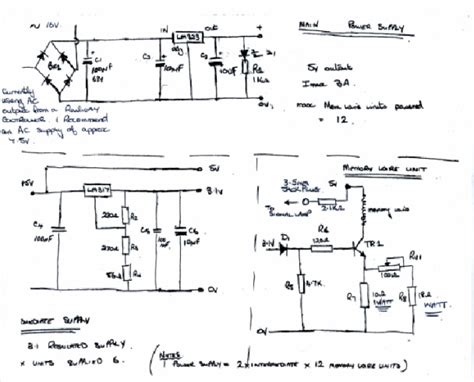 ~ 16V
IN
LM323
out
+
adj
BR1
C1
100µF
63V
C2
100µF
C3
100µF
R1
1KΩ
0V
Currently
using AC
output from a Railway
Controller. I Recommend
an AC supply of approx
7.5v.
MAIN POWER SUPPLY
5v output
Imax 3A.
max Mem wire units powered
= 12.
15V
5V
LM317
3.1V
C4
100µF
220Ω
R2
270Ω
R3
56Ω
R4
C5
C6
100µF
0V
SUPPLY
3.1 REGULATED SUPPLY
UNITS SUPPLIED 6.
MEMORY WIRE UNIT
3.5mm
JACK PLUG
To
SIGNAL LAMP
2.1KΩ
5V
memory wire
3.1V
D1
R6
120Ω
TR1
RV1
100Ω
R5
4.7K
R7
10Ω
WATT
R8
18Ω
WATT
0V
(NOTES
1 POWER SUPPLY = 2 X INTERMEDIATE X 12 MEMORY WIRE UNITS)